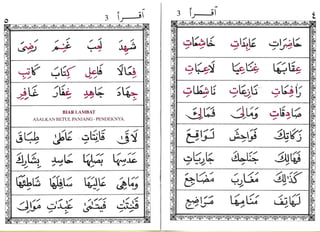 ٤ اقرأ 3
حَاضِرَاتٍ عَابِدَاتٍ خَاشِعَاتٍ
عِقَابَهَا لَاعِبَاتٍ
رَافِعَاتٍ نَازِعَاتٍ نَاشِطَاتٍ
صَادِقَاتٍ وَمَالِيَ
زَكَاتَكَ فَوَاحِشَ لَوَاقِحَ
فَهَالِكَ جَنَاحَكَ جَارِيَاتٍ
كَذَالِكَ مَغَارِبَ مَضَاجِعَ
مَنَامِهَا مَرَاضِعَ
اقرأ 3 ٥
شَهِدَ لَعِبَ غَنِمَ رَضِيَ
فِعَالًا فَاعِلِ كِتَابَ كَاتِبِ
جِهَادَ جَاهِدِ غِفَارَ غَافِرِ
BIAR LAMBAT
ASALKAN BETUL PANJANG - PENDEKNYA
لَاقَى قَانِتَاتِ عَاطَى طِبَاقَ
عَدَسِهَا بَصَلِهَا حَاسِدِ
وَمَاهِيَ عَالِيَهَا سَافِلَهَا شَاطِئِهَا
مَوَالِيَ